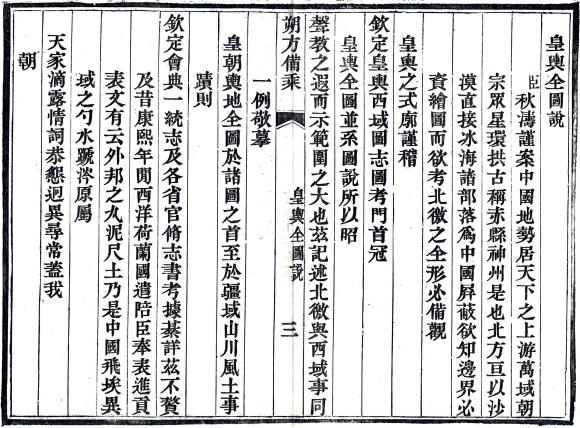 皇輿全圖說
臣秋濤謹案中國地勢居天下之上游萬域朝
宗眾星環拱古稱赤縣神州是也北方亘以沙
漠直接冰海諸部落為中國屏蔽欲知邊界必
資繪圖而欲考北徼之全形必備觀
皇輿之式廓謹稽
欽定皇輿西域圖志圖考門首冠
皇輿全圖並系圖說所以昭
聲教之遐而示範圍之大也茲記述北徼與西域事同
一例敬摹
皇朝輿地全圖於諸圖之首至於疆域山川風土事
蹟則
欽定會典一統志及各省官脩志書考據綦詳茲不贅
及昔康熙年閒西洋荷蘭國遣陪臣奉表進貢
表文有云外邦之丸泥尺土乃是中國飛埃異
域之勺水蹏涔原屬
天家滴露情詞恭懇迥異尋常蓋我
朝
朔方備乘
皇輿全圖說
三